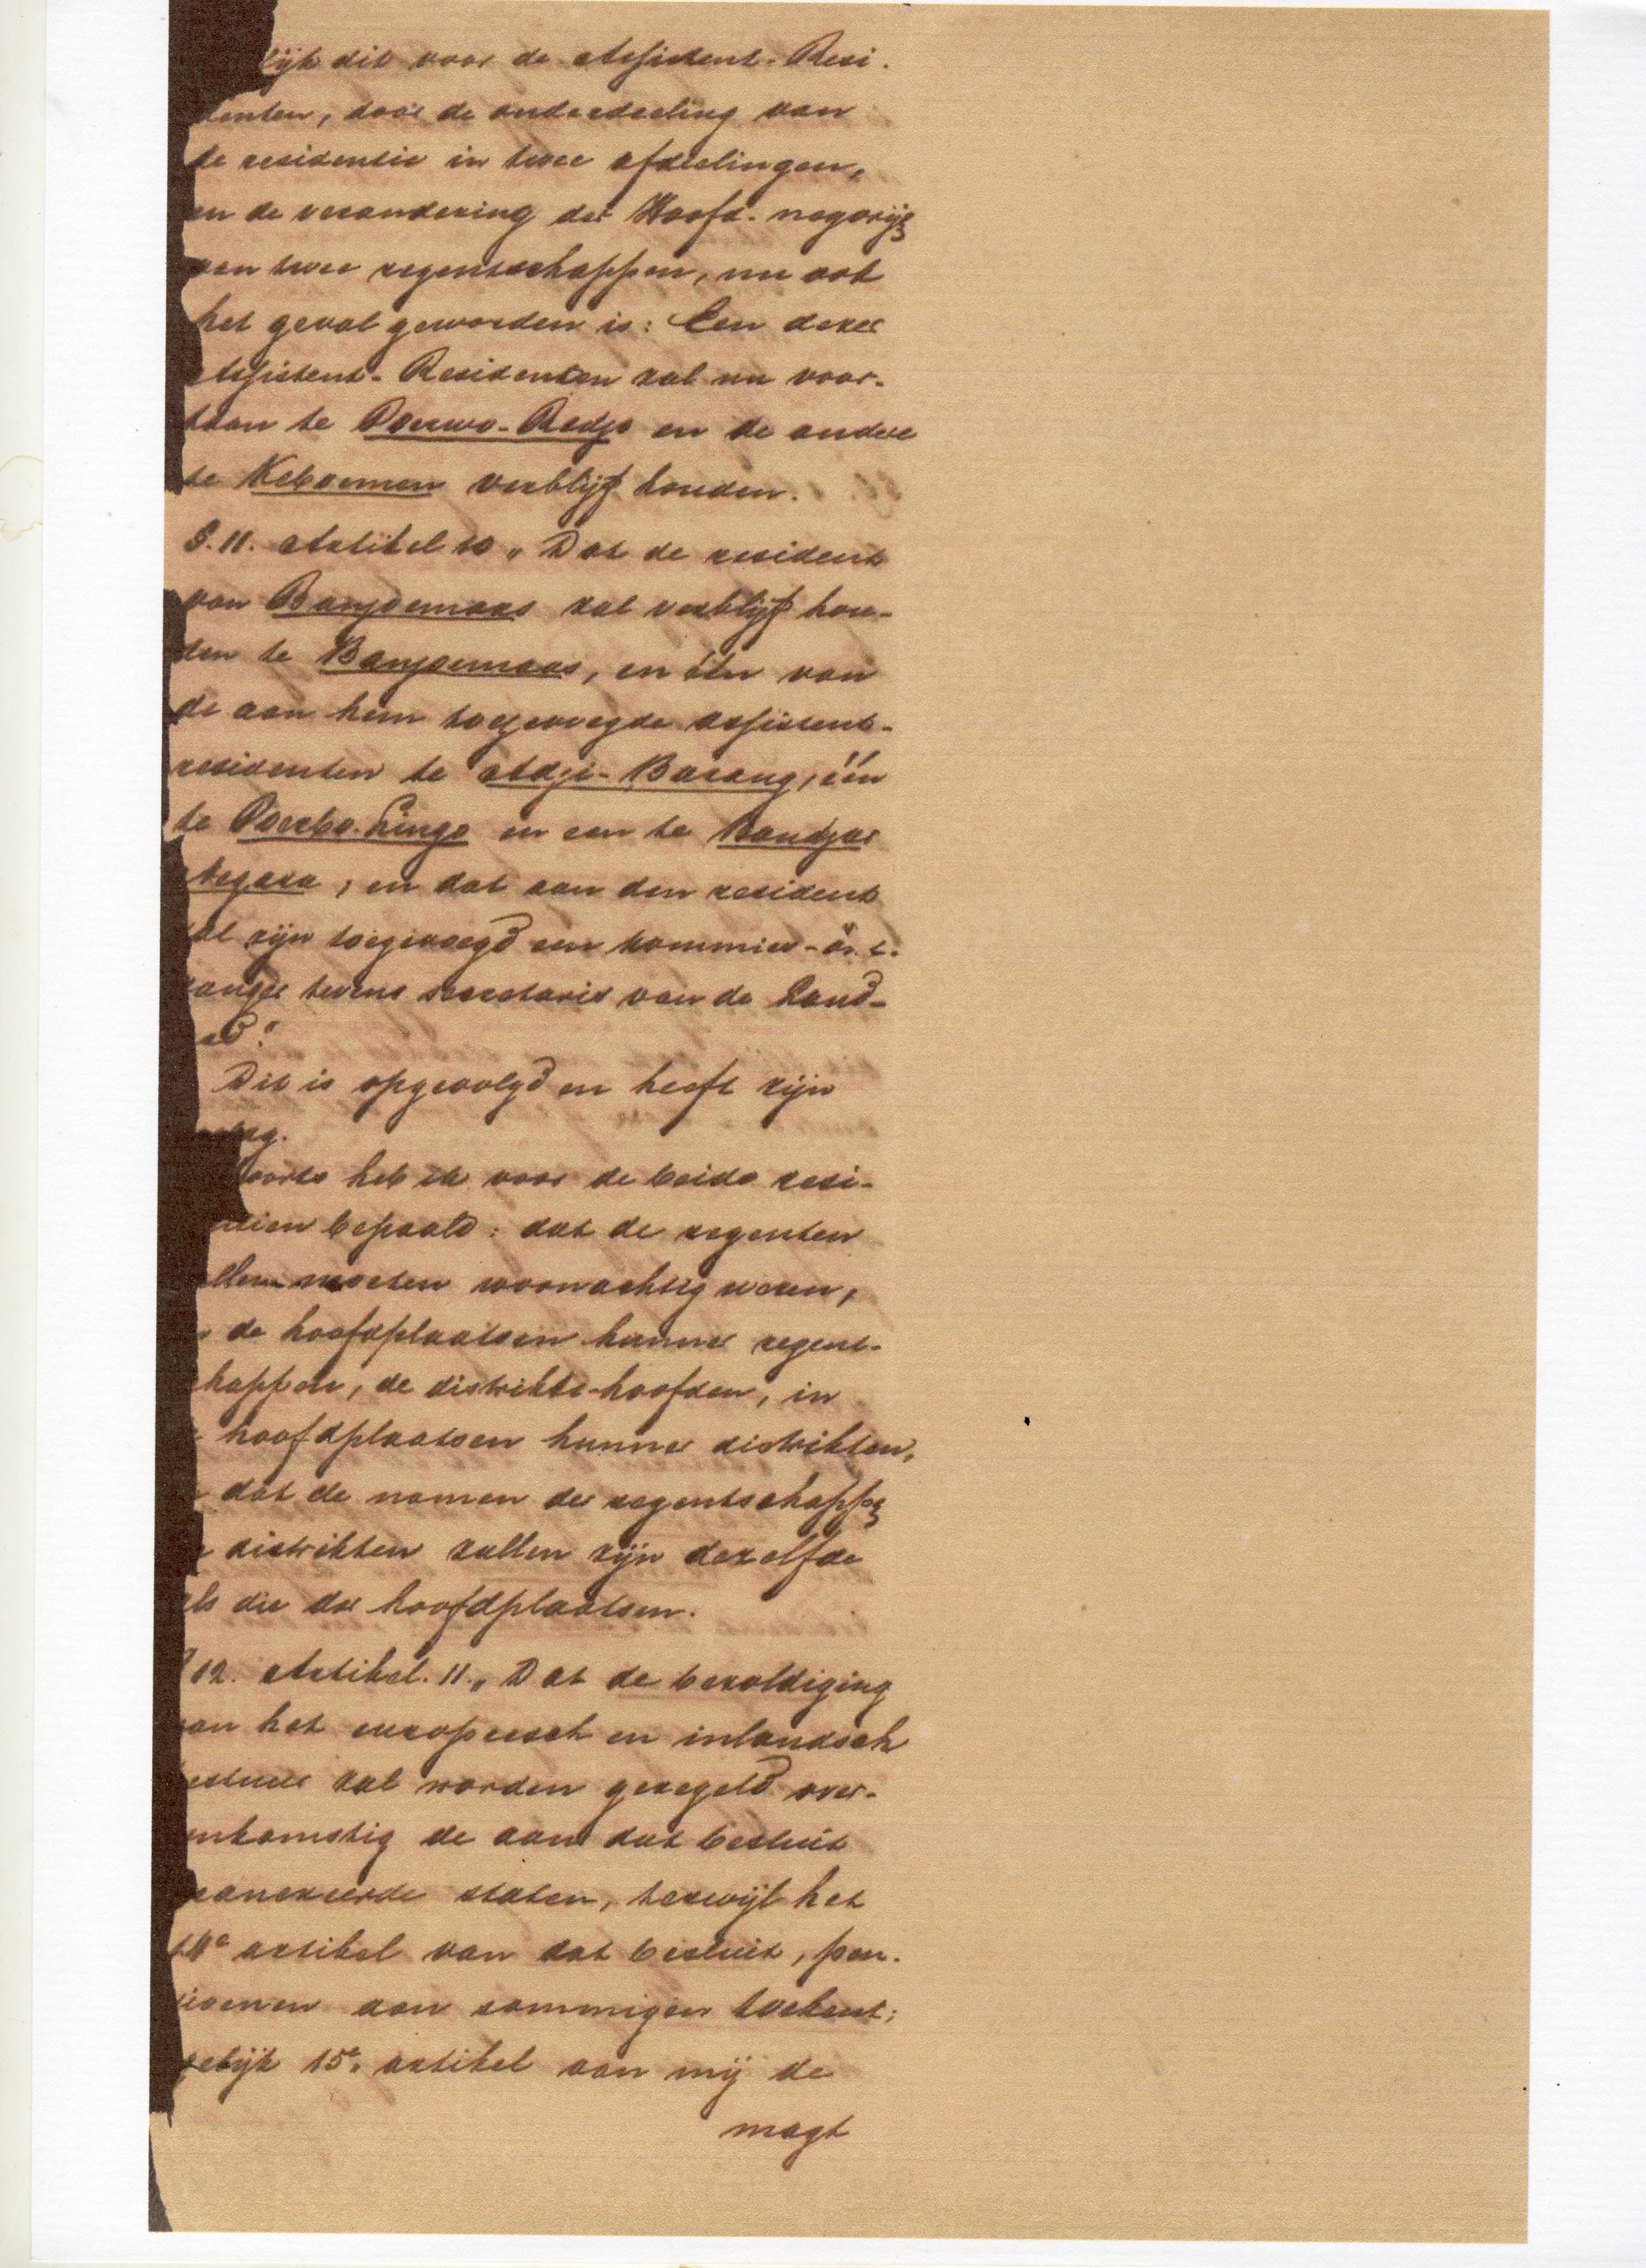 lijk dit voor de Assistent-Resi-
denten, door de onderdeeling van
de residentie in twee afdeelingen,
en de verandering der Hoofd-nagorijs
van twee regentschappen, nu ook
het geval geworden is: Een dezer
Assistent-Residenten zal nu voor-
taan te Poerwo-Redjo en de andere
te Keboemen verblijf houden.
§.11. Artikel 10 „Dat de resident
van Banjoemaas zal verblijf hou-
den te Banjoemaas, en één van
de aan hem toegevoegde assistent-
residenten te Adji-Barang, één
te Poerbo-Lingo en een te Bandjar
Negara, en dat aan den resident
zal zijn toegevoegd een kommies-ont-
vanger tevens secretaris van de Land-
ad."
Dit is opgevolgd en heeft zijn
slag.
Voorts heb ik voor de beide resi-
ntien bepaald: dat de regenten
llen moeten woonachtig wezen,
de hoofdplaatsen hunner regent-
happen, de distrikts-hoofden, in
hoofdplaatsen hunner distrikten,
dat de namen der regentschappen
distrikten zullen zijn dezelfde
als die der hoofdplaatsen.
§12. Artikel. 11. „Dat de bezoldiging
van het europeesch en inlandsch
bestuur zal worden geregeld over-
enkomstig de aan dat besluit
geanexeerde staten, terwijl het
14e artikel van dat besluit, pen-
sioenen aan sommigen toekent;
gelijk 15e. artikel aan mij de
magt